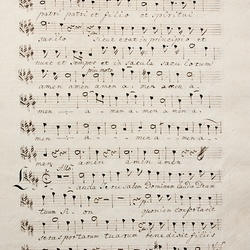 patri patri et filio et spiritui
sancto sicut erat in principio et
nunc et semper et in saecula saeculorum
amen amen amen a- men a-
men a- a- men a-
men a- men a-
men amen amen amen
Allo
Lauda Jerusalem Dominum lauda Deum
tuum Sion quoniam confortavit
seras portarum tuarum benedixit filiis